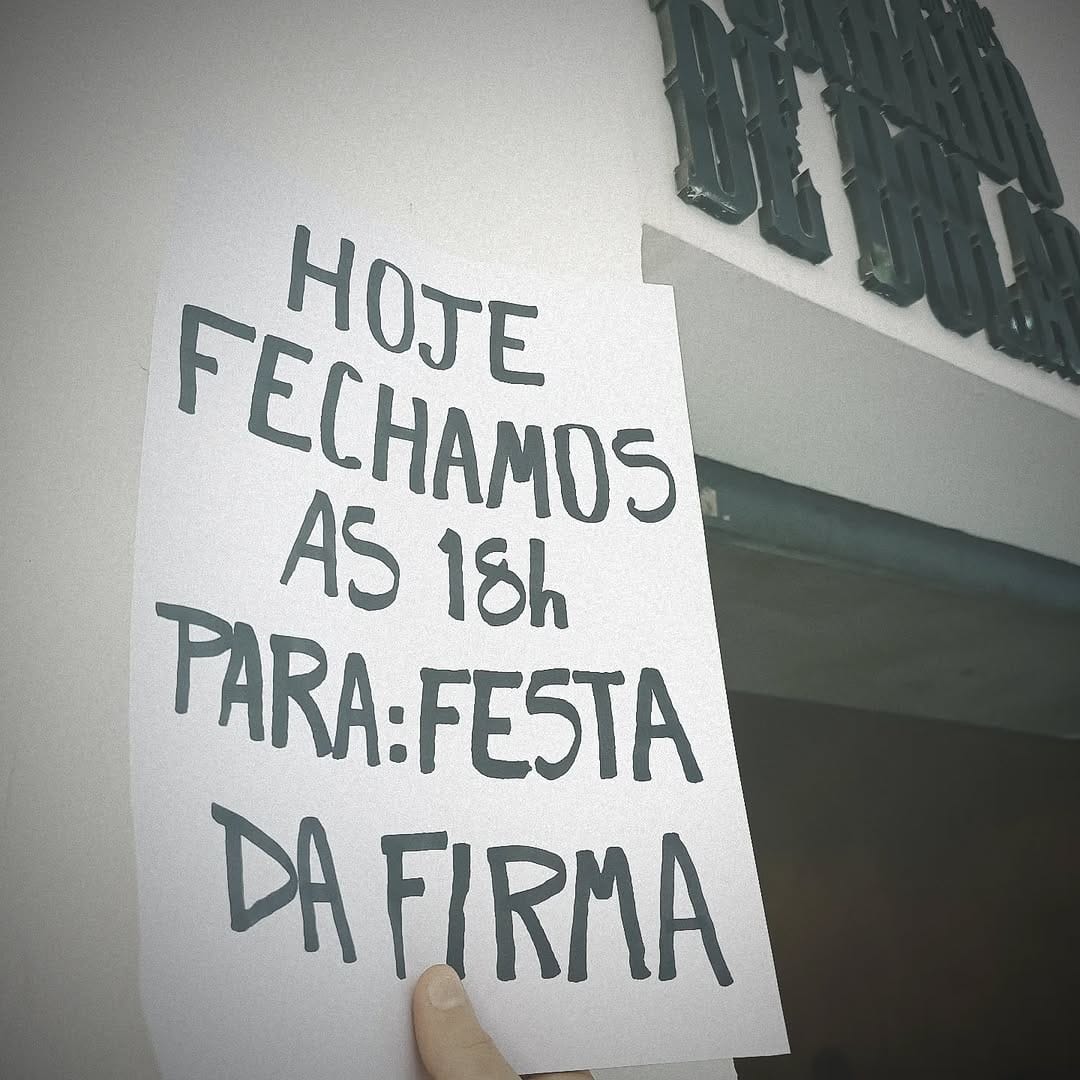 HOJE
FECHAMOS
AS 18h
PARA:FESTA
DA FIRMA
DE